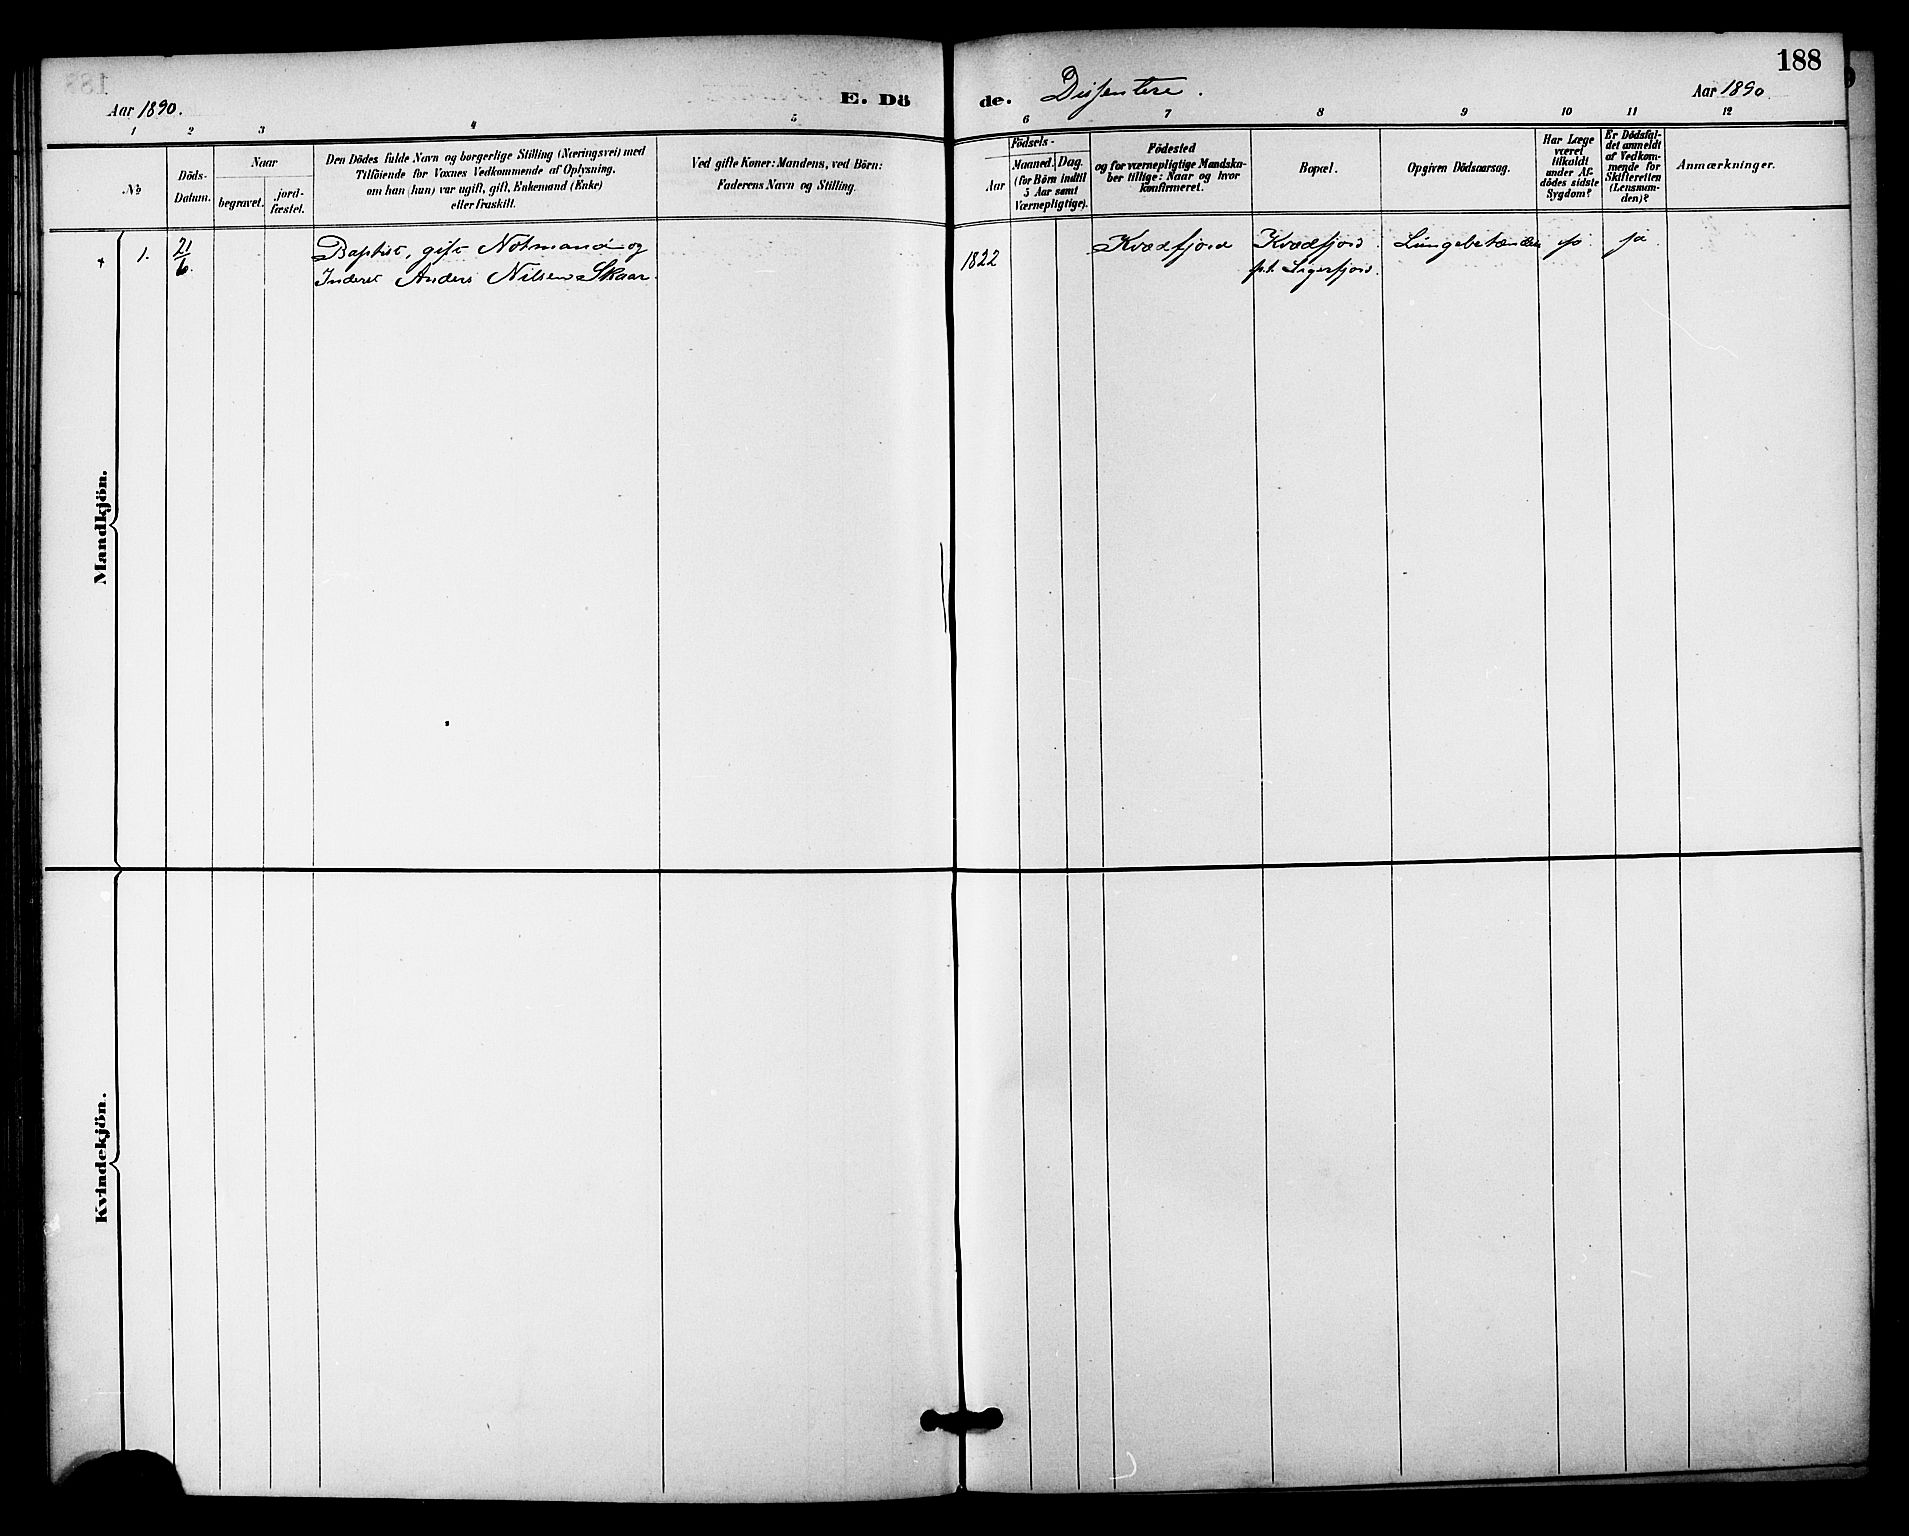 188
Aar 1890.
E. Dö
de. Dissentere.
Aar 1890.
1 2 3 4 5 6 7 8 9 10 11 12
№
Döds-
Datum.
Naar
begravet.
jord-
fæstet.
Den Dödes fulde Navn og borgerlige Stilling (Næringsvei) med
Tilföiende for Voxnes Vedkommende af Oplysning,
om han (hun) var ugift, gift, Enkemand (Enke)
eller fraskilt.
Ved gifte Koner: Mandens, ved Börn:
Faderens Navn og Stilling.
Födsels-
Aar
Maaned. Dag.
(for Börn indtil
5 Aar samt
Værnepligtige).
Födested
og for værnepligtige Mandska-
ber tillige: Naar og hvor
konfirmeret.
Bopæl.
Opgiven Dödsaarsag.
Har Læge
været
tilkaldt
under Af-
dödes sidste
Sygdom?
Er Dödsfal-
det anmeldt
af Vedkom-
mende for
Skifteretten
(Lensman-
den)?
Anmærkninger.
Mandkjön.
1. 21/6. Baptist, gift Notmand og
Inderst Anders Nilsen Skaar.
1822
Kvædfjord
Kvædfjord.
p.t. Sigerfjord.
Lungebetændelse
ja.
ja.
Kvindekjön.